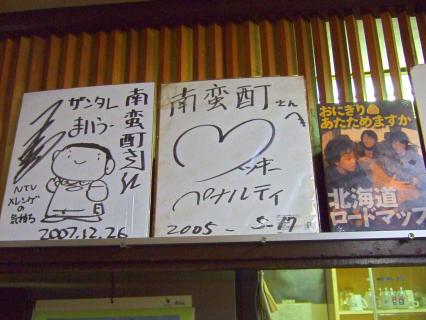 南蛮酊さん江
ザンタレ
まいうー
NTV
メレンゲの
気持ち
2007.12.26
南蛮酊さんへ
ペナルティ
2005-5-17
おにぎり
あたためますか
北海道
ロードマップ